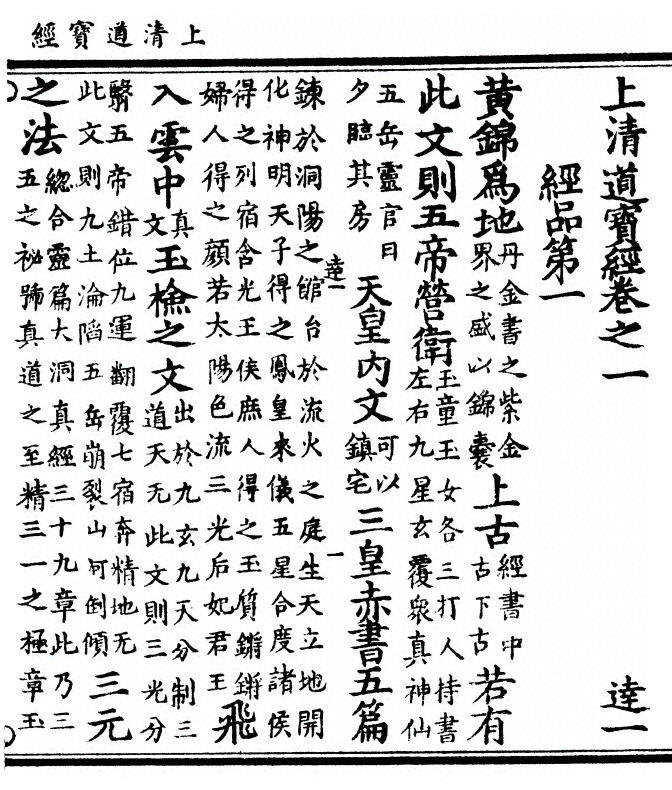 上清道寶經
上清道寶經卷之一 逹一
經品第一
黃錦爲地丹金書之紫金
界之盛以錦囊上古經書中
古下古若有
此文則五帝營衛玉童玉女各三打人持書
左右九星玄覆衆真神仙
五岳靈官日
夕臨其房天皇內文可以
鎮宅三皇赤書五篇
逹一 一
鍊於洞陽之館台於流火之庭生天立地開
化神明天子得之鳳皇來儀五星合度諸侯
得之列宿含光王侯庶人得之玉質鏘鏘
婦人得之顔若太陽色流三光后妃君王飛
入雲中真
文玉檢之文出於九玄九天分制三
道天无此文則三光分
翳五帝錯位九運翻覆七宿奔精地无
此文則九土淪陷五岳崩裂山河倒傾三元
之法緫合靈篇大洞真經三十九章此乃三
五之祕號真道之至精三一之極章玉